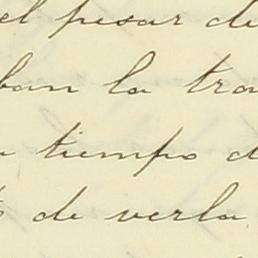 el pesar de
ban la tra
tiempo d
de verla